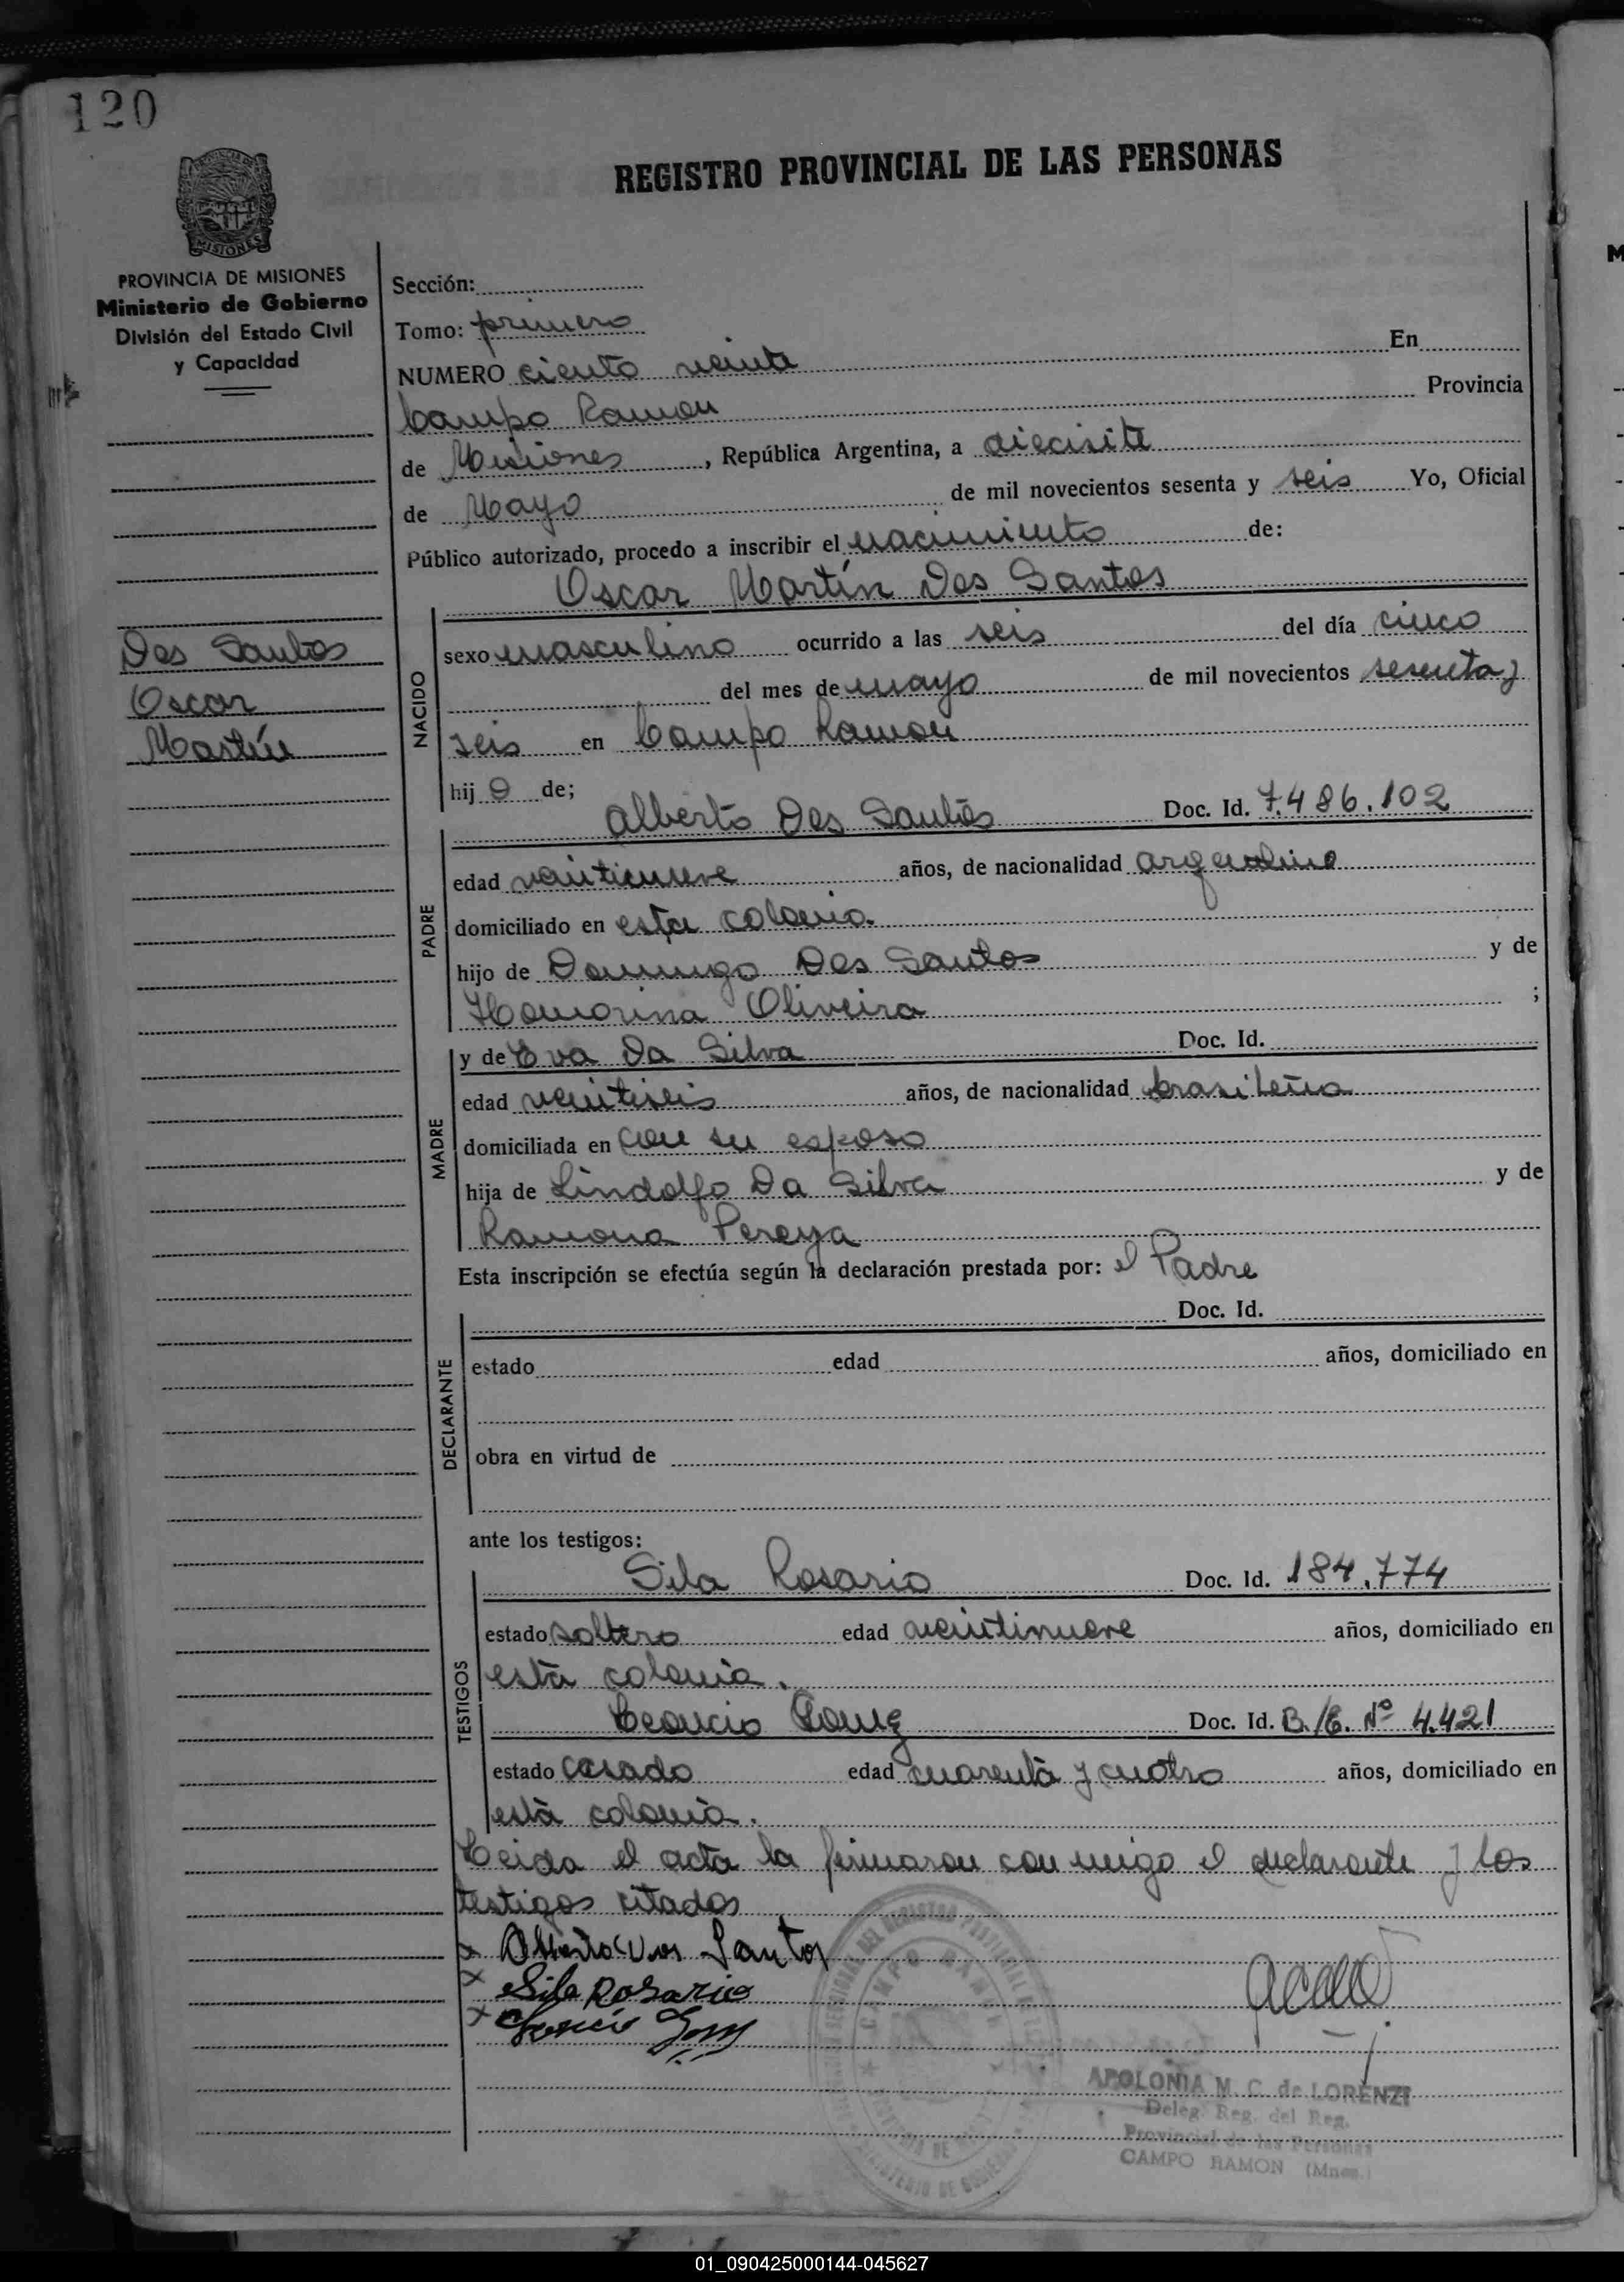 120
REGISTRO PROVINCIAL DE LAS PERSONAS
MISIONES
PROVINCIA DE MISIONES
Ministerio de Gobierno
División del Estado Civil
y Capacidad
Des Santos
Oscar
Martín
Sección:
Tomo: primero
NUMERO ciento veinte En
Campo Ramon Provincia
de Misiones, República Argentina, a diecisite
de Mayo de mil novecientos sesenta y seis Yo, Oficial
Público autorizado, procedo a inscribir el nacimiento de:
Oscar Martín Des Santos
NACIDO
sexo masculino ocurrido a las seis del día cinco
del mes de mayo de mil novecientos sesenta y
seis en Campo Ramon
hijo de;
Alberto Des Santos Doc. Id. 7.486.102
PADRE
edad veintinueve años, de nacionalidad argentino
domiciliado en esta colonia.
hijo de Domingo Des Santos y de
Oliveira ;
MADRE
y de Eva Da Silva Doc. Id.
edad veintiseis años, de nacionalidad brasileña
domiciliada en con su esposo
hija de Lindolfo Da Silva y de
Ramona Pereya
Esta inscripción se efectúa según la declaración prestada por: el Padre
DECLARANTE
Doc. Id.
estado edad años, domiciliado en
obra en virtud de
ante los testigos:
TESTIGOS
Sila Rosario Doc. Id. 184.774
estado soltero edad veintinueve años, domiciliado en
esta colonia.
Doc. Id. B./E. Nº 4.421
estado casado edad cuarenta y cuatro años, domiciliado en
esta colonia.
Leida el acta la firmaron con migo el declarante y los
testigos citados
x Alberto Des Santos
x Sila Rosario
x
CAMPO RAMON
APOLONIA M. C. de LORENZI
Deleg. Reg. del Reg.
Provincial de las Personas
CAMPO RAMON (Mnes.)
01_090425000144-045627